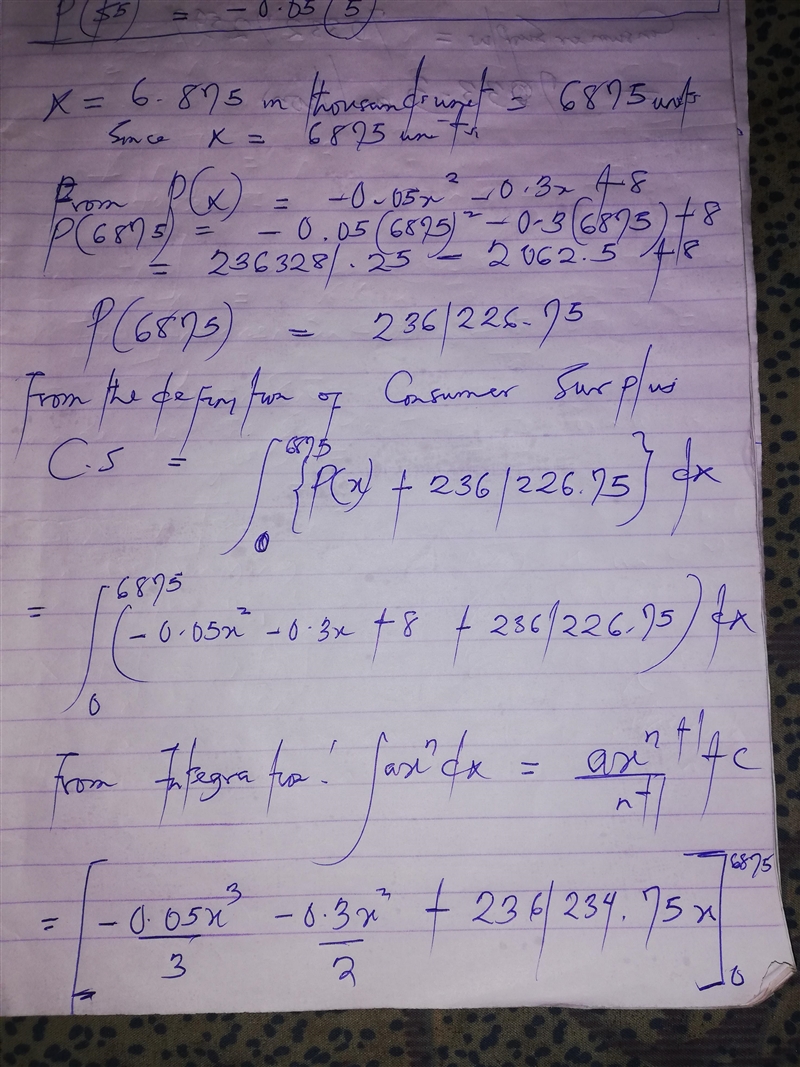 P($5) = -0.05(5)
x = 6.875 in thousands unit = 6875 units
Since x = 6875 units
From P(x) = -0.05x² - 0.3x + 8
P(6875) = -0.05(6875)² - 0.3(6875) + 8
= 2363281.25 - 2062.5 + 8
P(6875) = 2361226.75
From the definition of Consumer Surplus
C.S = ∫₀⁶⁸⁷⁵ {P(x) + 2361226.75} dx
= ∫₀⁶⁸⁷⁵ (-0.05x² - 0.3x + 8 + 2361226.75) dx
From Integration: ∫axⁿ dx = axⁿ⁺¹/n+1 + c
= [-0.05x³/3 - 0.3x²/2 + 2361234.75x]₀⁶⁸⁷⁵